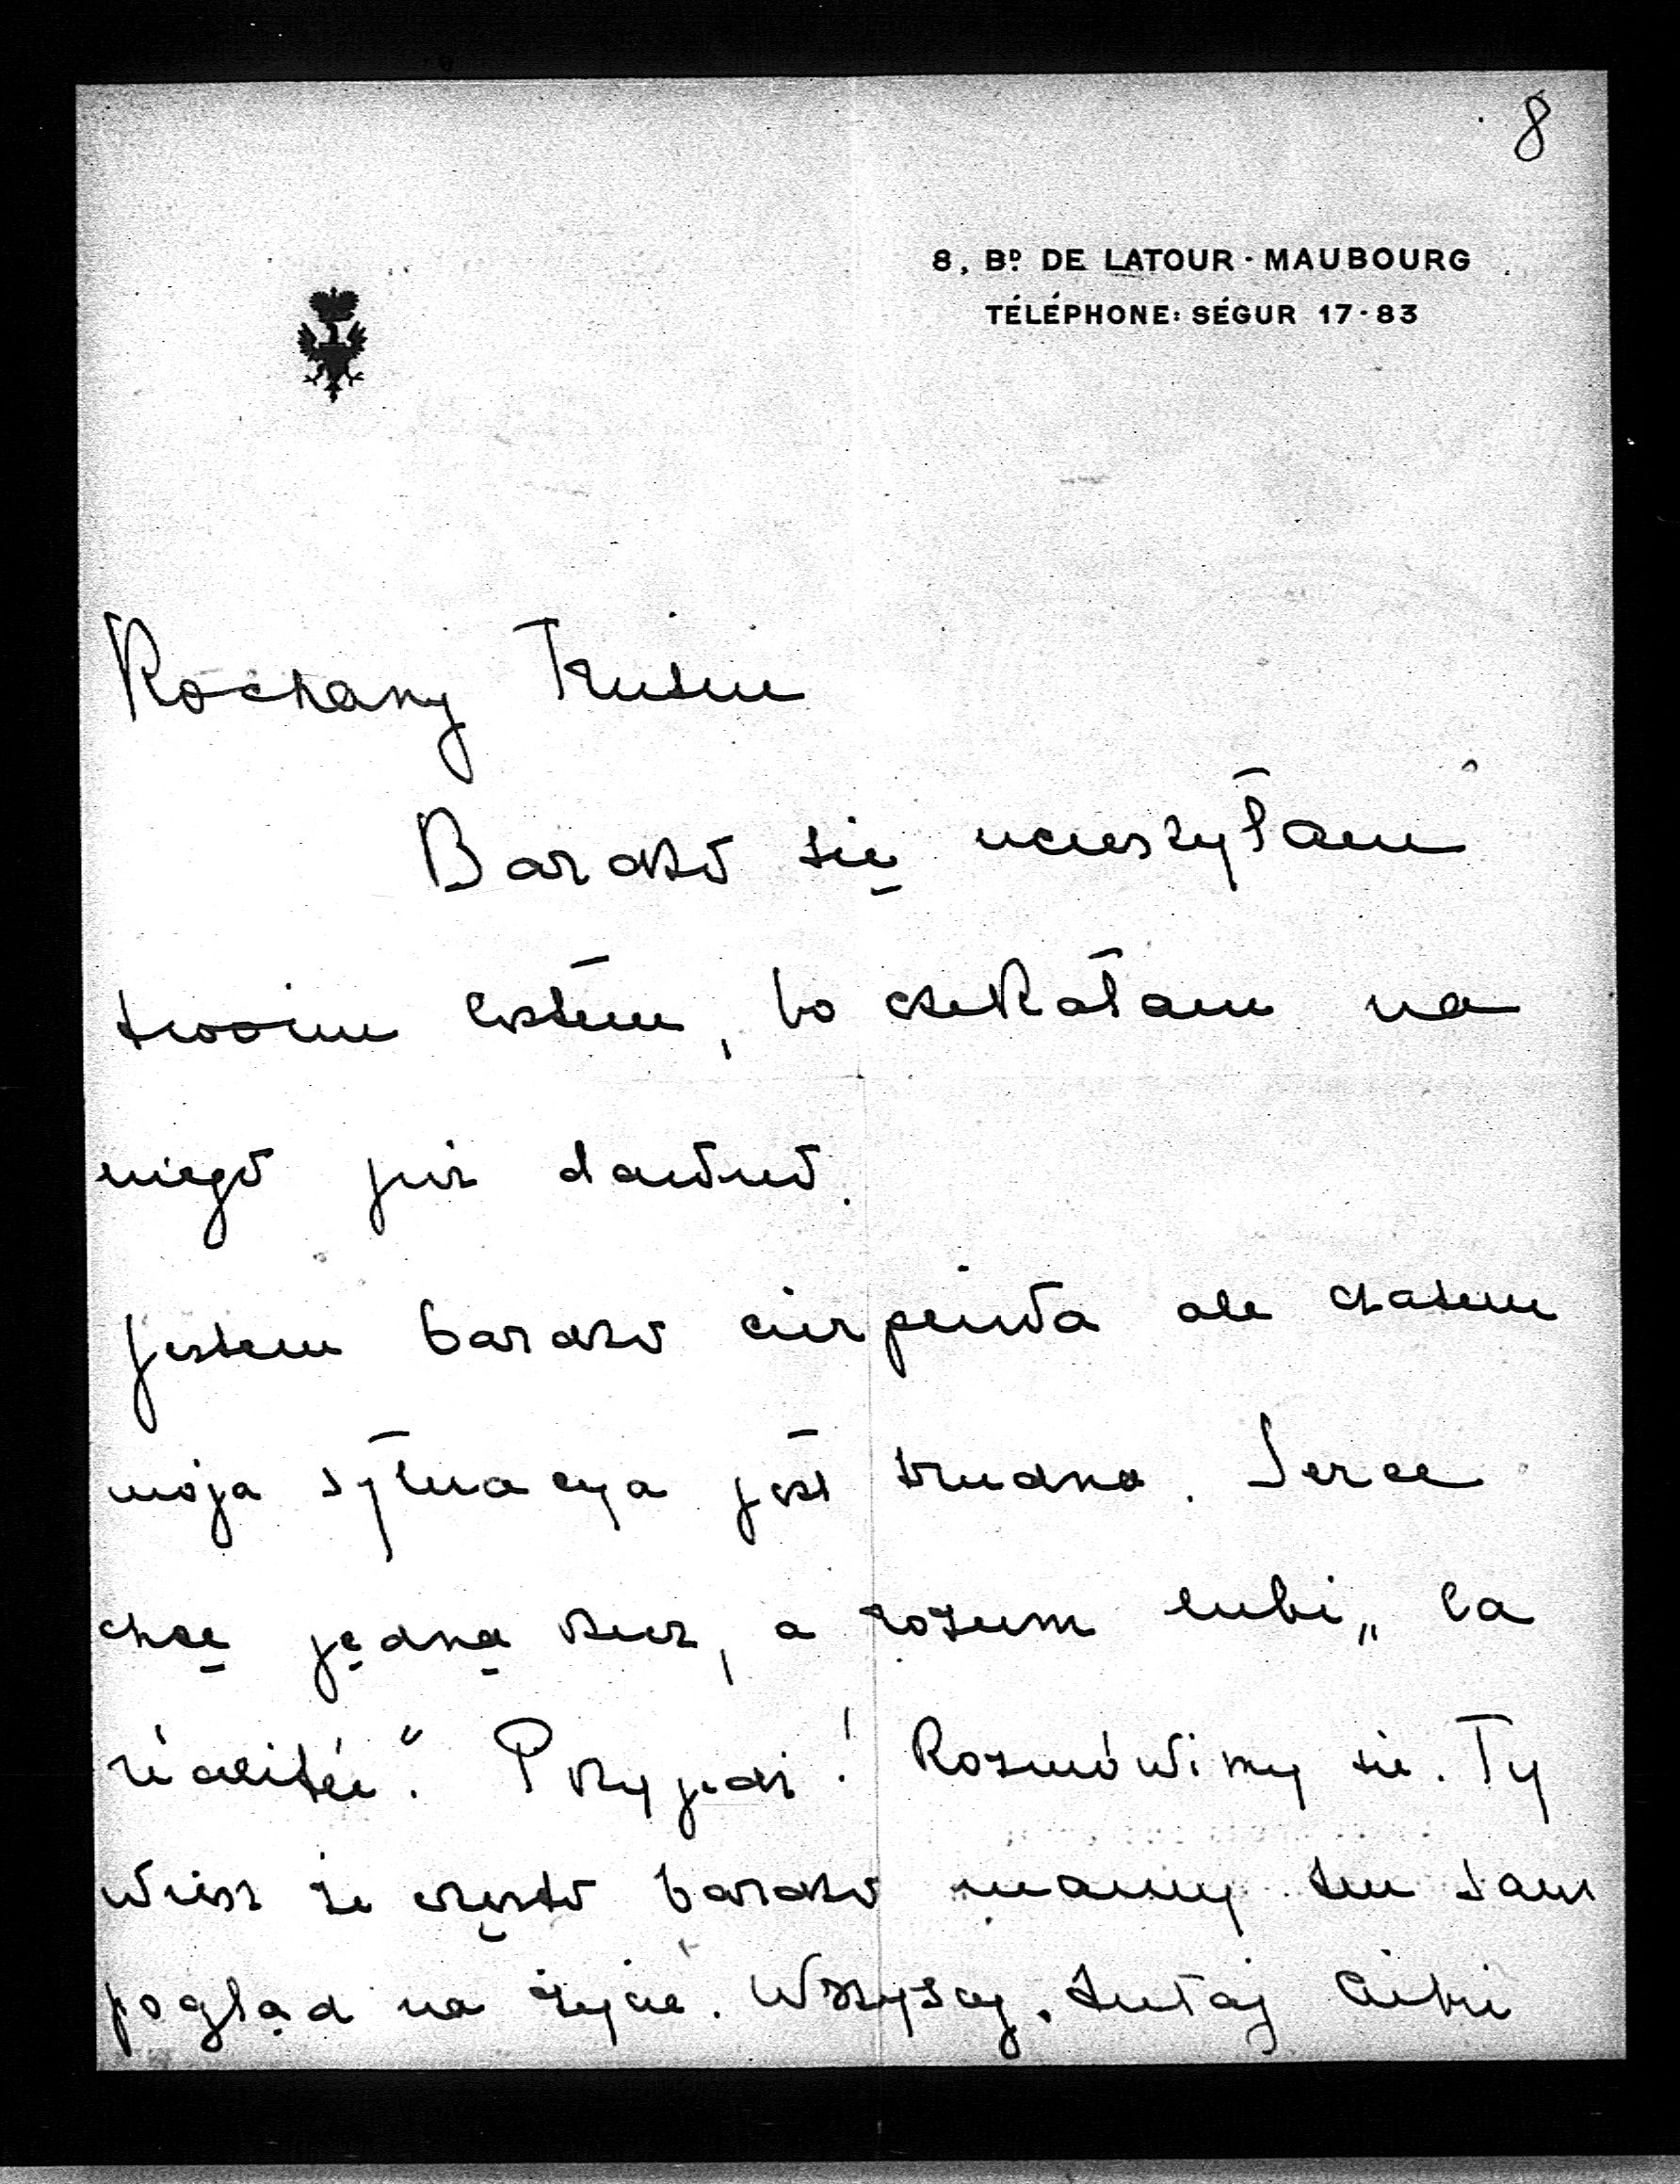 8
8, BD DE LATOUR-MAUBOURG
TÉLÉPHONE: SÉGUR 17-83
Kochany
Bardzo się ucieszyłam
twoim listem, bo czekałam na
niego już dawno.
Jestem bardzo cierpiewa ale czasem
moja sytuacya jest trudna. Serce
chcę jędną rzecz, a rozum lubi „la
réalitée". Przyjedź! Rozmówimy sie. Ty
wiesz że często bardzo mamy ten sam
pogląd na życie. Wszyscy tutaj Cibie